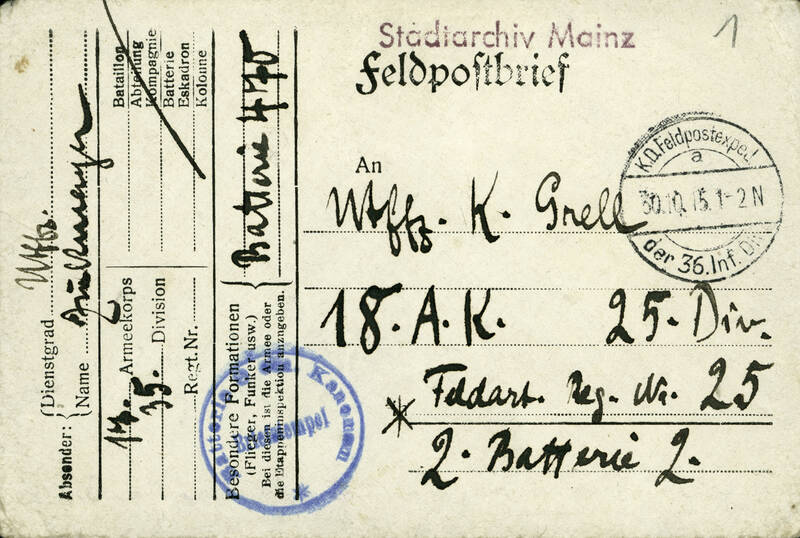 Stadtarchiv Mainz
1
Feldpostbrief
An
Utffz. K. Grell
18. A.K. 25. Div.
Feldart. Reg. Nr. 25
2. Batterie 2.
K.D. Feldpostexped.
a
30.10.15. 1-2 N
der 36. Inf. Div.
Absender:
Dienstgrad Utffz.
Name
Bataillon
Abteilung
Kompagnie
Batterie
Eskadron
Kolonne
17. Armeekorps
35. Division
Regt. Nr.
Besondere Formationen
(Flieger, Funker usw.)
Bei diesen ist die Armee oder
die Etappeninspektion anzugeben.
Batterie 470
Kanonen